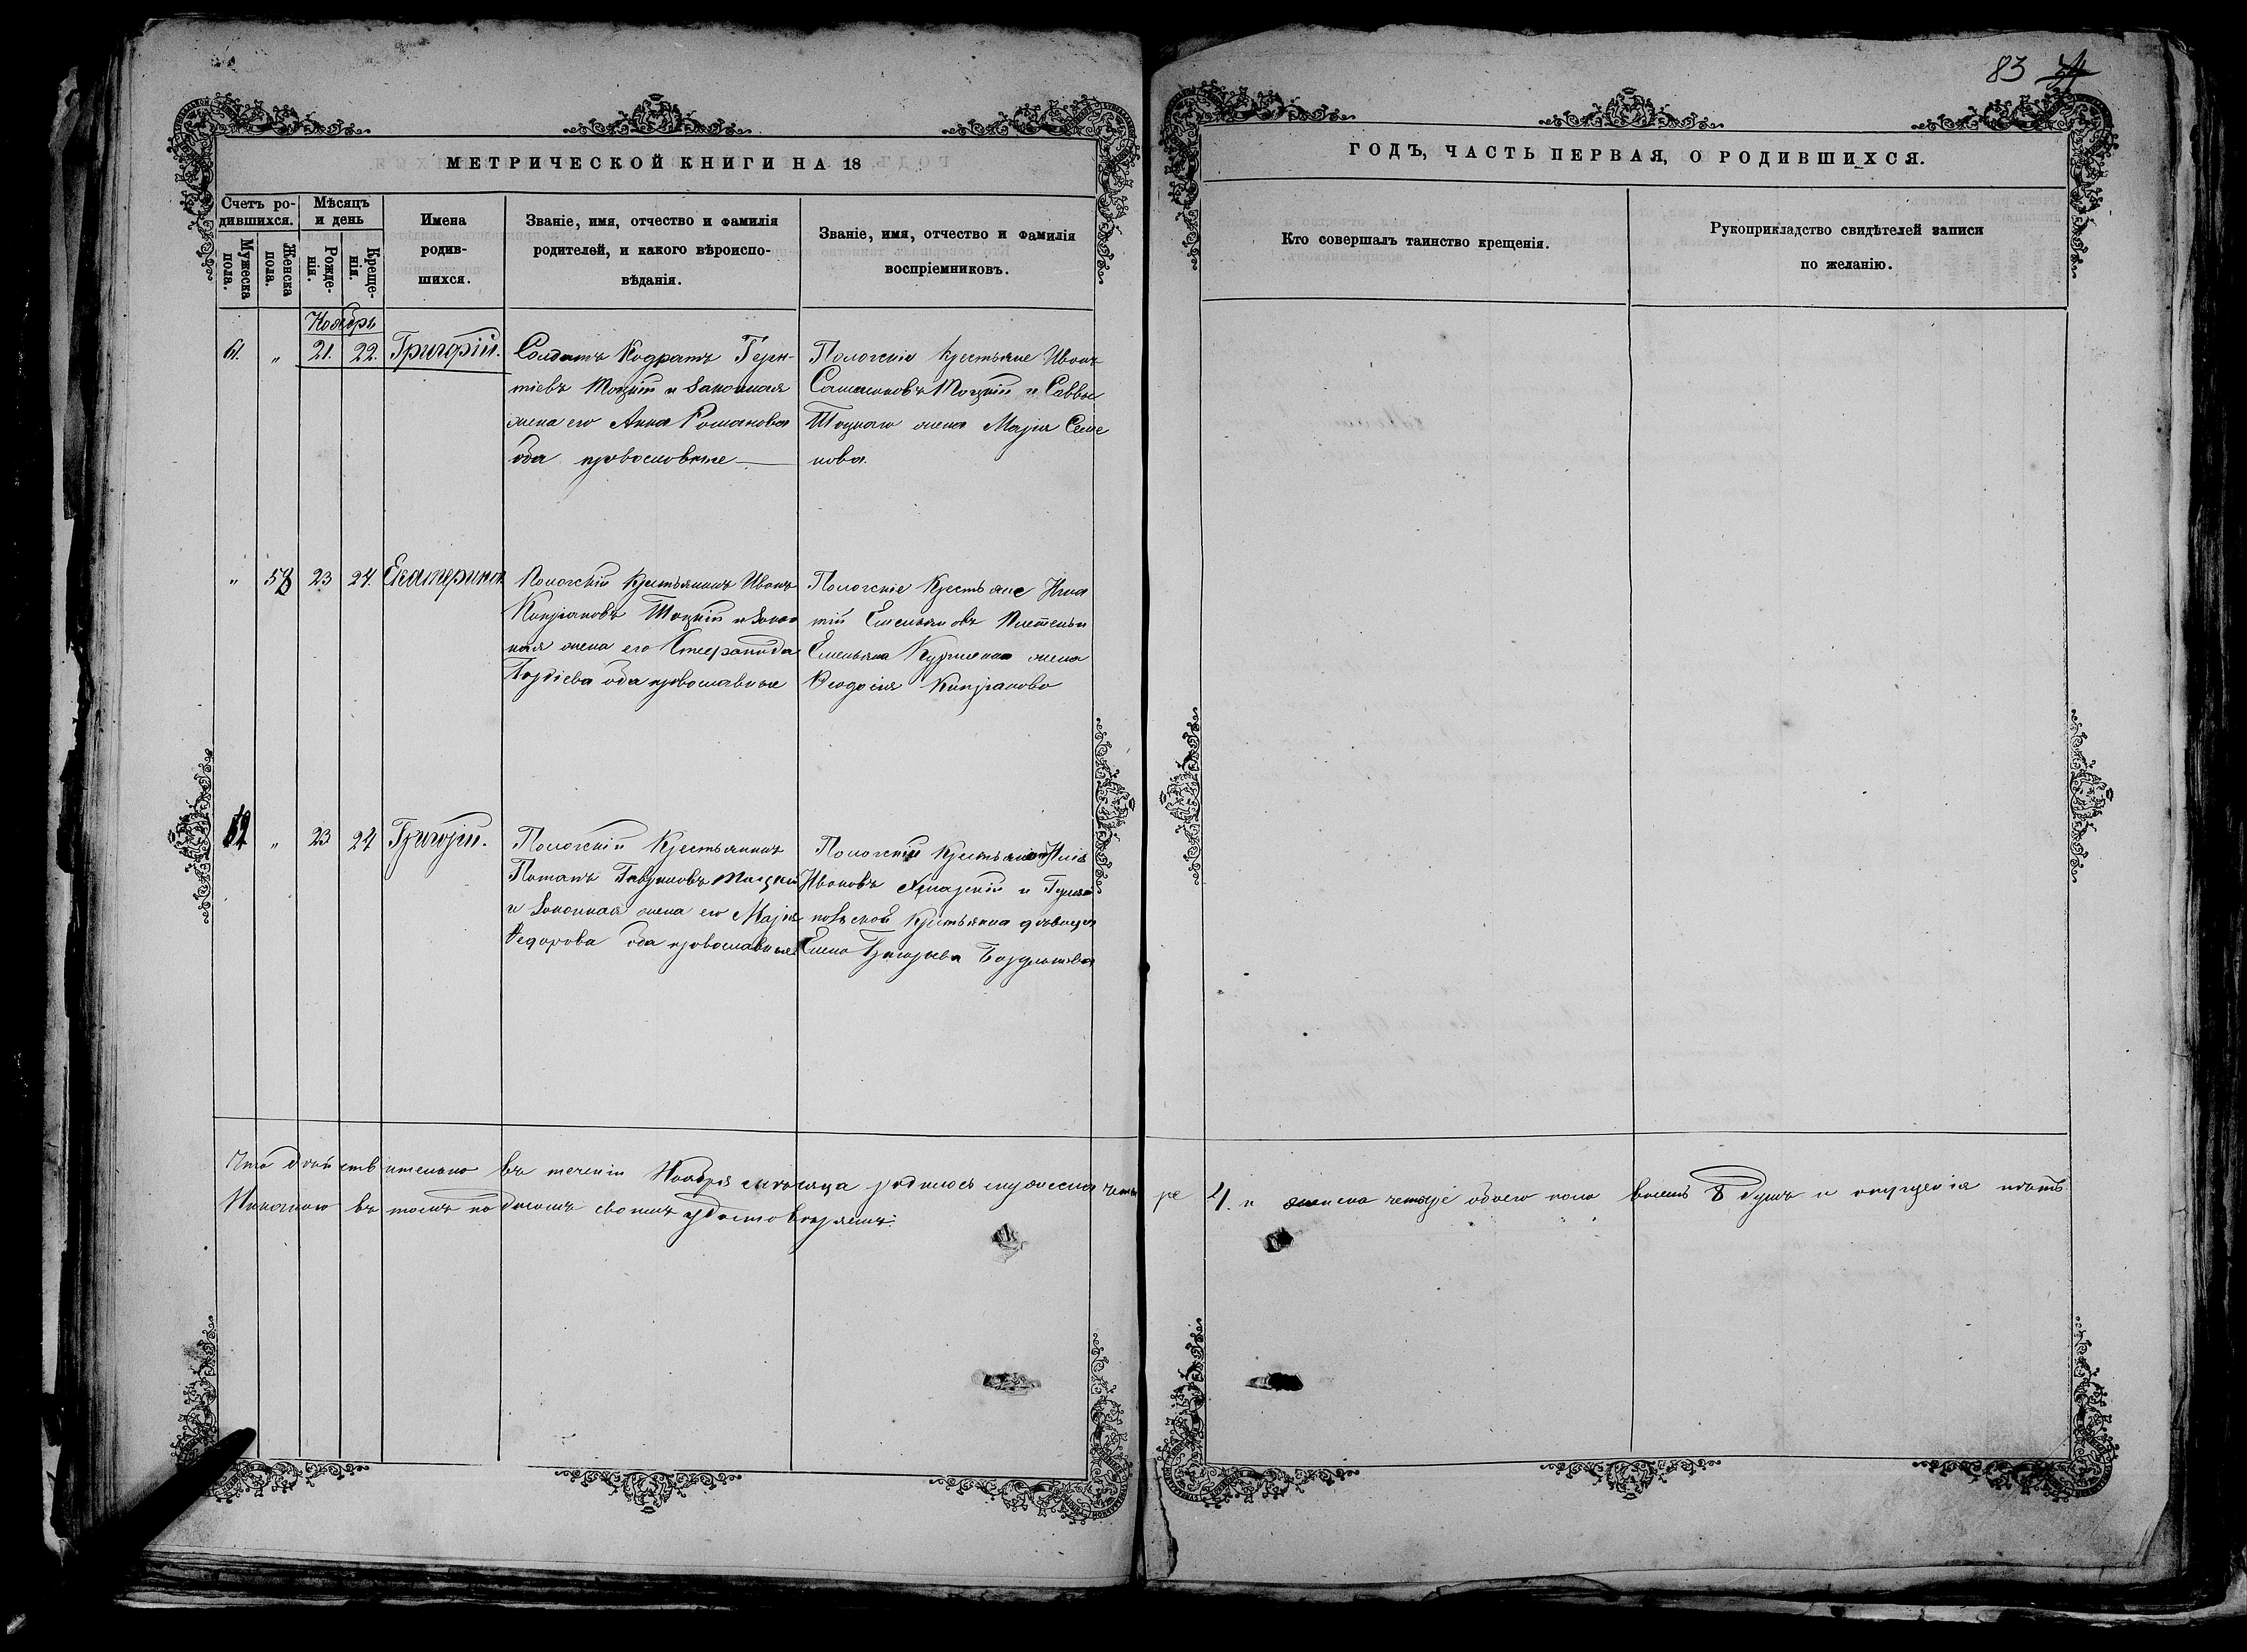 83
МЕТРИЧЕСКОЙ КНИГИ НА 18
ГОДЪ, ЧАСТЬ ПЕРВАЯ, О РОДИВШИХСЯ.
Счетъ ро-
дившихся.
Мужеска
пола.
Женска
пола.
Мѣсяцъ
и день
Рожде-
нія.
Креще-
нія.
Имена
родив-
шихся.
Званіе, имя, отчество и фамилія
родителей, и какого вѣроиспо-
вѣданія.
Званіе, имя, отчество и фамилія
воспріемниковъ.
Кто совершалъ таинство крещенія.
Рукоприкладство свидѣтелей записи
по желанію.
Ноябрь
61. " 21. 22. Григорій.
Солдатъ Кодратъ
тіевъ Тоцкій и законная
жена его Анна Романова
оба православные
Пологскіе крестьяне Иванъ
Тоцкій и Саввы
Тоцкаго жена Марія Семе
нова.
" 58 23 24. Екатерина
Пологскій крестьянинъ Иванъ
Кипріановъ Тоцкій и закон
ная жена его
оба православные
Пологскіе крестьяне Игна
тій Емельяновъ
Емельяна жена
Ѳеодосія Кипріанова
62 " 23 24 Григорій.
Пологскій крестьянинъ
Потапъ Гавриловъ Тоцкій
и законная жена его Марія
Федорова оба православные
Пологскій крестьянинъ Илія
Ивановъ и Гуляй
польской крестьянка дѣвица
Елена Григорьева
Что дѣйствительно въ теченіи Ноября мѣсяца родилось мужеска четы
ре 4. и женска четыре обоего пола восемь 8 душъ и опущенія нѣтъ
Никакого въ томъ подписомъ своимъ удостовѣряемъ: